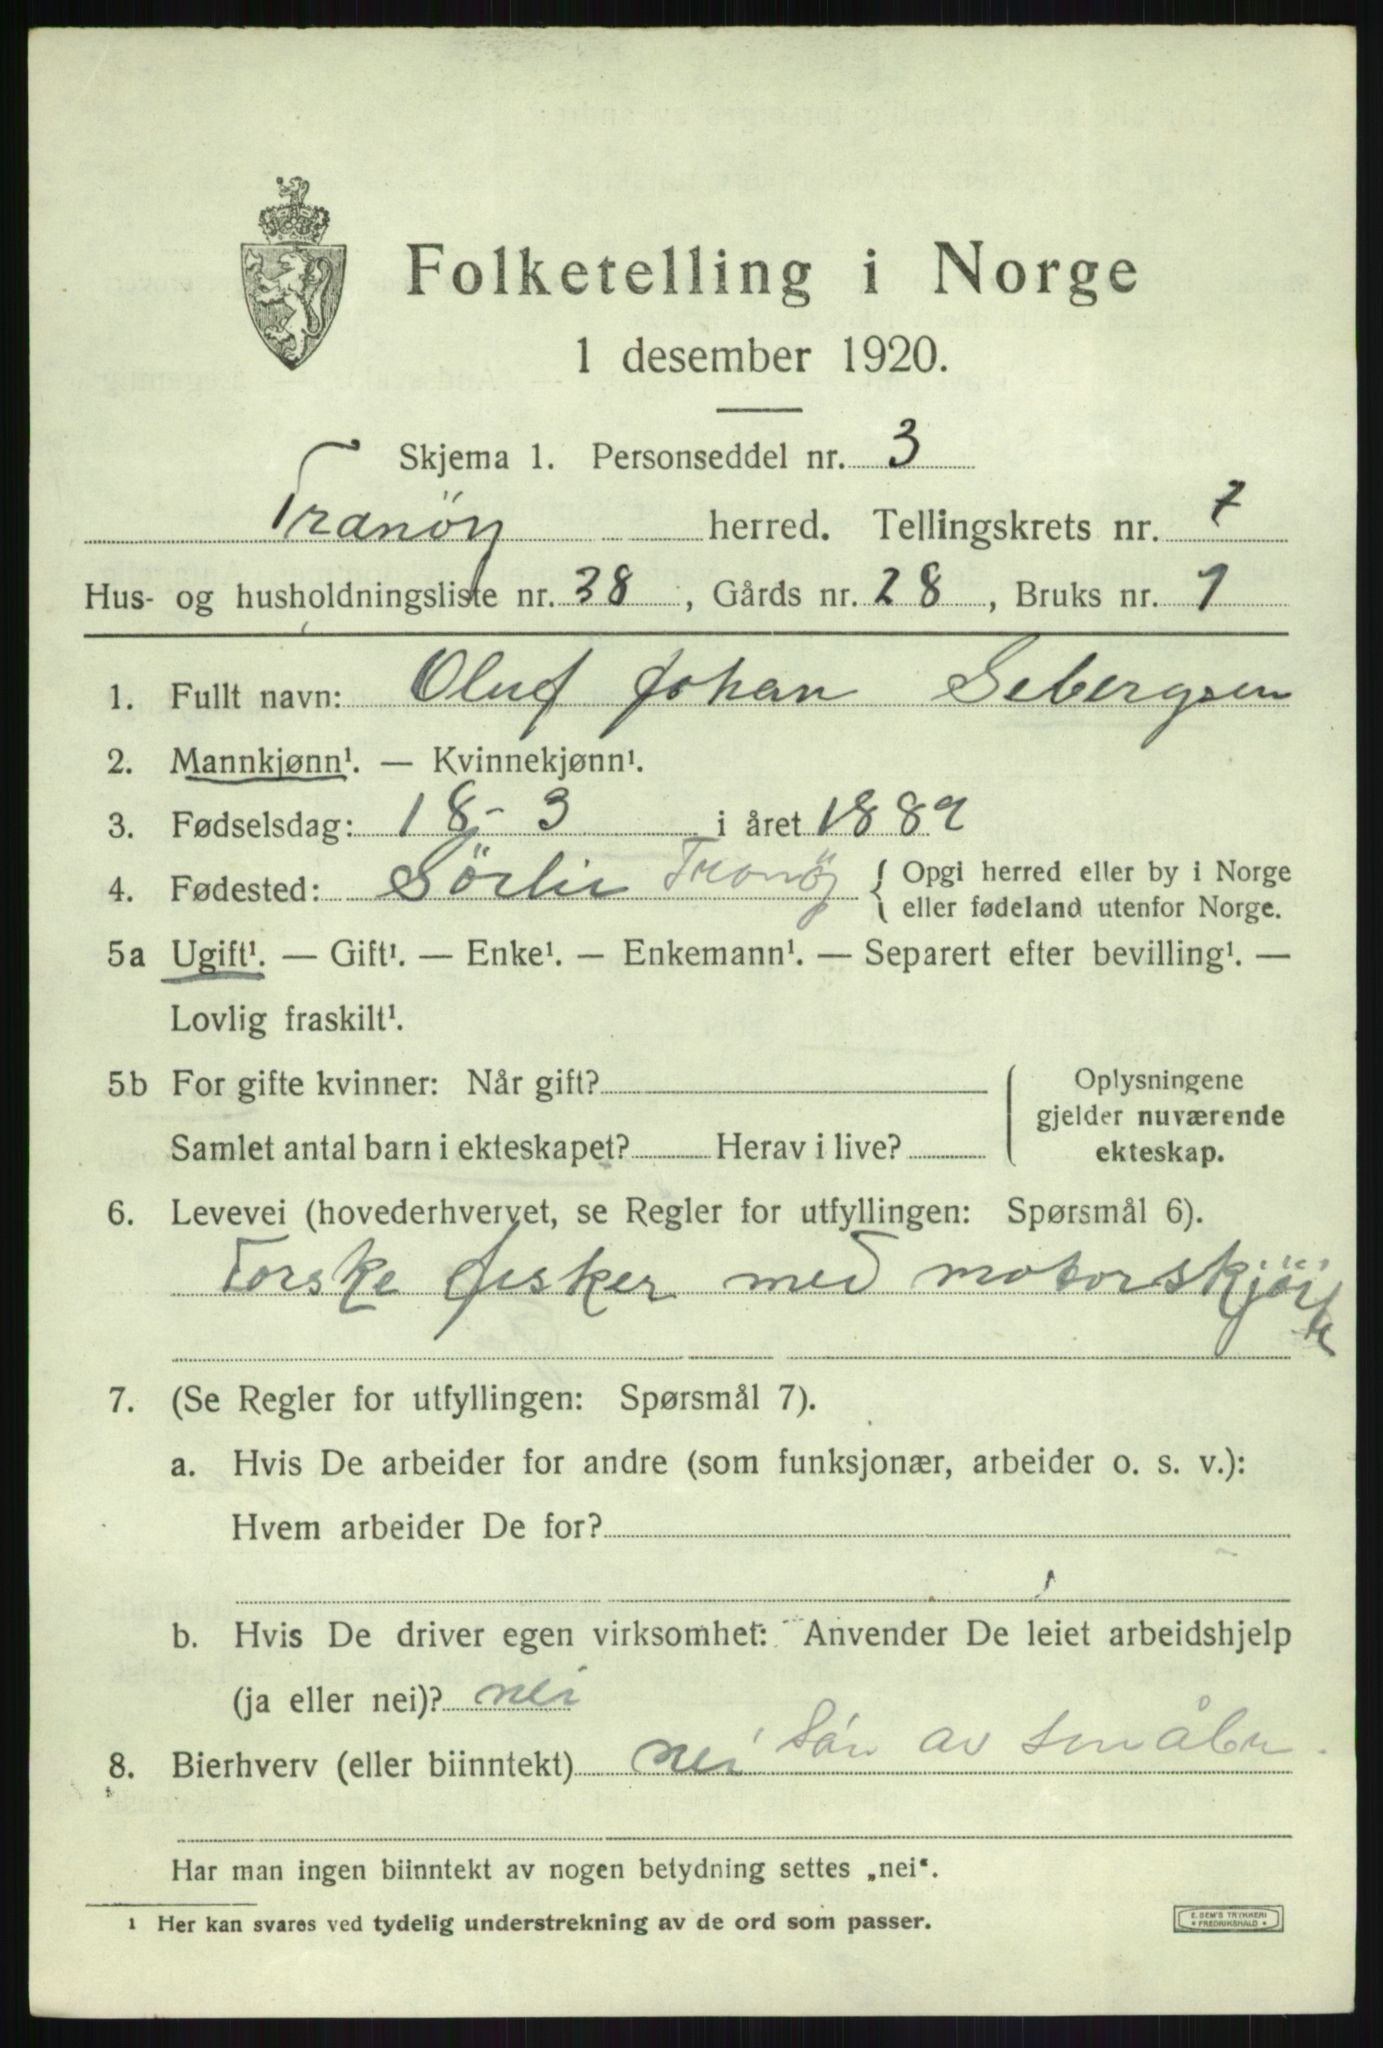 Folketelling i Norge
1 desember 1920.
Skjema 1. Personseddel nr. 3
Tranöy herred. Tellingskrets nr. 7
Hus- og husholdningsliste nr. 38, Gårds nr. 28, Bruks nr. 1
1. Fullt navn: Oluf Johan Sebergsen
2. Mannkjønn¹. — Kvinnekjønn¹.
3. Fødselsdag: 18-3 i året 1889
4. Fødested: Sörlie Tranöy { Opgi herred eller by i Norge
eller fødeland utenfor Norge.
5a Ugift¹. — Gift¹. — Enke¹. — Enkemann¹. — Separert efter bevilling¹. —
Lovlig fraskilt¹.
5b For gifte kvinner: Når gift? { Oplysningene
gjelder nuværende
Samlet antal barn i ekteskapet? Herav i live? ekteskap.
6. Levevei (hovederhvervet, se Regler for utfyllingen: Spørsmål 6).
Torske fisker med motorskjöite
7. (Se Regler for utfyllingen: Spørsmål 7).
a. Hvis De arbeider for andre (som funksjonær, arbeider o. s. v.):
Hvem arbeider De for?
b. Hvis De driver egen virksomhet: Anvender De leiet arbeidshjelp
(ja eller nei)? nei
8. Bierhverv (eller biinntekt) nei Sön av småbr.
Har man ingen biinntekt av nogen betydning settes „nei“.
¹ Her kan svares ved tydelig understrekning av de ord som passer.
E. SEM'S TRYKKERI
* FREDRIKSHALD *